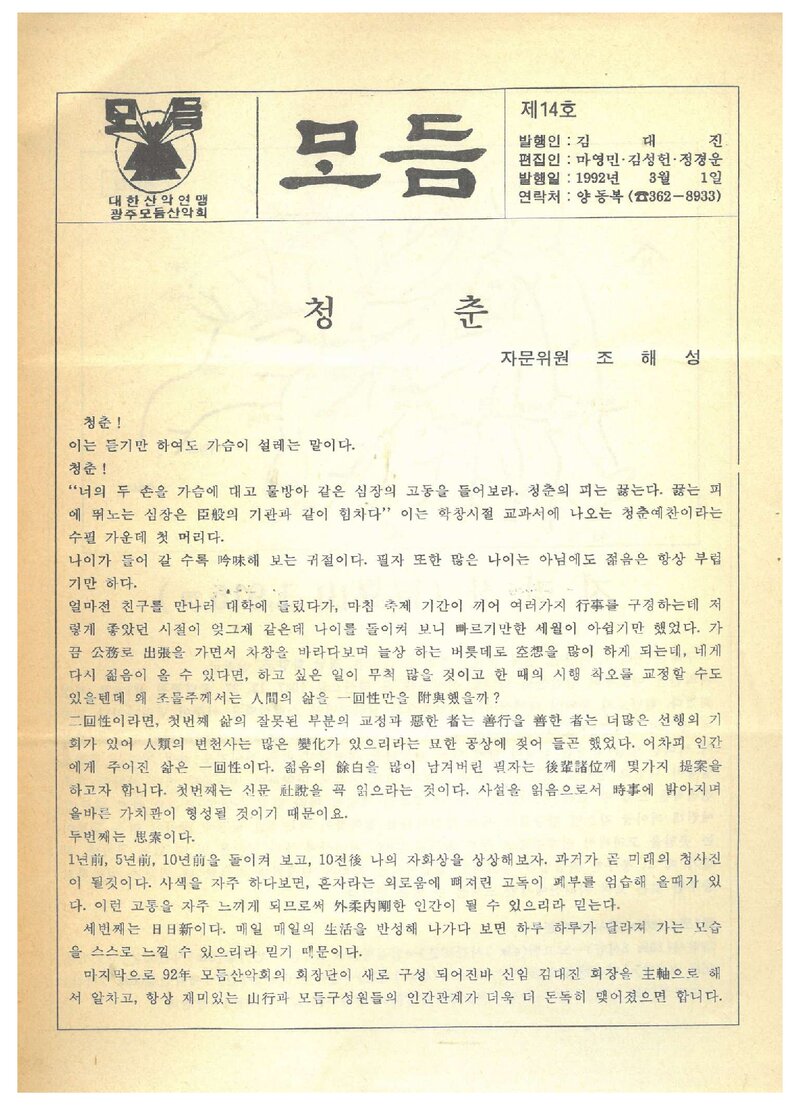 모듬
대한산악연맹
광주모듬산악회
모듬
제14호
발행인 : 김 대 진
편집인 : 마영민·김성헌·정경운
발행일 : 1992년 3월 1일
연락처 : 양동복 (☎362－8933)
청 춘
자문위원 조 해 성
청춘 !
이는 듣기만 하여도 가슴이 설레는 말이다.
청춘 !
“너의 두 손을 가슴에 대고 물방아 같은 심장의 고동을 들어보라. 청춘의 피는 끓는다. 끓는 피
에 뛰노는 심장은 臣般의 기관과 같이 힘차다” 이는 학창시절 교과서에 나오는 청춘예찬이라는
수필 가운데 첫 머리다.
나이가 들어 갈 수록 吟味해 보는 귀절이다. 필자 또한 많은 나이는 아님에도 젊음은 항상 부럽
기만 하다.
얼마전 친구를 만나러 대학에 들렀다가, 마침 축제 기간이 끼어 여러가지 行事를 구경하는데 저
렇게 좋았던 시절이 엊그제 같은데 나이를 돌이켜 보니 빠르기만한 세월이 아쉽기만 했었다. 가
끔 公務로 出張을 가면서 차창을 바라다보며 늘상 하는 버릇데로 空想을 많이 하게 되는데, 네게
다시 젊음이 올 수 있다면, 하고 싶은 일이 무척 많을 것이고 한 때의 시행 착오를 교정할 수도
있을텐데 왜 조물주께서는 人間의 삶을 一回性만을 附與했을까 ?
二回性이라면, 첫번째 삶의 잘못된 부분의 교정과 惡한 者는 善行을 善한 者는 더많은 선행의 기
회가 있어 人類의 변천사는 많은 變化가 있으리라는 묘한 공상에 젖어 들곤 했었다. 어차피 인간
에게 주어진 삶은 一回性이다. 젊음의 餘白을 많이 남겨버린 필자는 後輩諸位께 몇가지 提案을
하고자 합니다. 첫번째는 신문 社說을 꼭 읽으라는 것이다. 사설을 읽음으로서 時事에 밝아지며
올바른 가치관이 형성될 것이기 때문이요.
두번째는 思索이다.
1년前, 5년前, 10년前을 돌이켜 보고, 10전後 나의 자화상을 상상해보자. 과거가 곧 미래의 청사진
이 될것이다. 사색을 자주 하다보면, 혼자라는 외로움에 뼈저린 고독이 폐부를 엄습해 올때가 있
다. 이런 고통을 자주 느끼게 되므로써 外柔內剛한 인간이 될 수 있으리라 믿는다.
세번째는 日日新이다. 매일 매일의 生活을 반성해 나가다 보면 하루 하루가 달라져 가는 모습
을 스스로 느낄 수 있으리라 믿기 때문이다.
마지막으로 92年 모듬산악회의 회장단이 새로 구성 되어진바 신임 김대진 회장을 主軸으로 해
서 알차고, 항상 재미있는 山行과 모듬구성원들의 인간관계가 더욱 더 돈독히 맺어졌으면 합니다.